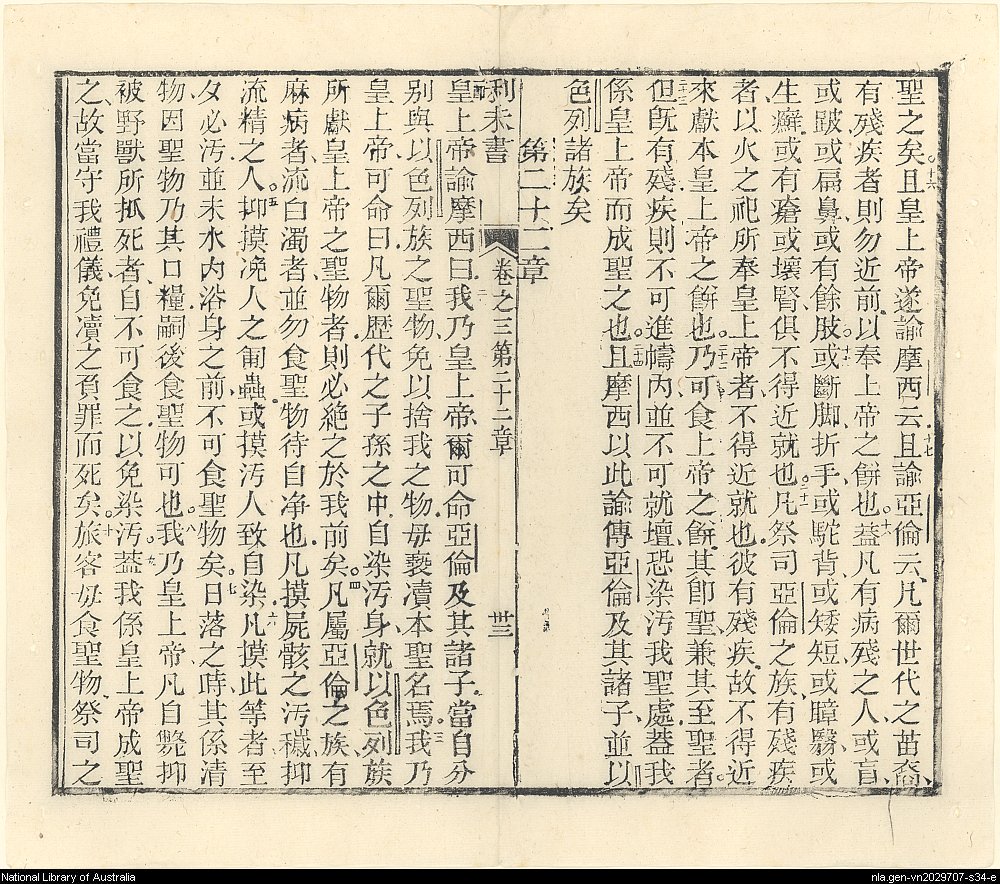 聖之矣。十六且皇上帝遂諭摩西云、十七且諭亞倫云、凡爾世代之苗裔、
有殘疾者則勿近前、以奉上帝之餅也。十八蓋凡有病殘之人、或盲、
或跛、或扁鼻、或有餘肢。十九或斷脚折手、或駝背、或矮短、或瞕翳、或
生癬、或有瘡、或壞腎、俱不得近就也。二十一凡祭司亞倫之族、有殘疾
者、以火之祀所奉皇上帝者、不得近就也、彼有殘疾、故不得近
來獻本皇上帝之餅也。二十二乃可食上帝之餅、其卽聖兼其至聖者。
二十三但旣有殘疾、則不可進幬內、並不可就壇、恐染汚我聖處、蓋我
係皇上帝而成聖之也。二十四且摩西以此諭傳亞倫及其諸子、並以
色列諸族矣
第二十二章
利未書 卷之三第二十二章 卅三
皇上帝諭摩西曰、二我乃皇上帝、爾可命亞倫及其諸子、當自分
别與以色列族之聖物、免以捨我之物、毋褻瀆本聖名焉。三我乃
皇上帝、可命曰、凡爾歷代之子孫之中、自染汚身、就以色列族
所獻皇上帝之聖物者、則必絶之於我前矣。四凡屬亞倫之族、有
麻病者、流白濁者、並勿食聖物、待自净也、凡摸屍骸之汚穢、抑
流精之人。五抑摸凂人之匍蟲、或摸汚人致自染。六凡摸此等者、至
夕必汚、並未水內浴身之前、不可食聖物矣。七日落之時、其係清
物、因聖物乃其口糧、嗣後食聖物可也。八我乃皇上帝、凡自斃抑
被野獸所抓死者、自不可食之、以免染汚。九蓋我係皇上帝成聖
之、故當守我禮儀、免瀆之負罪而死矣。十旅客毋食聖物、祭司之
National Library of Australia
nla.gen-vn2029707-s34-e